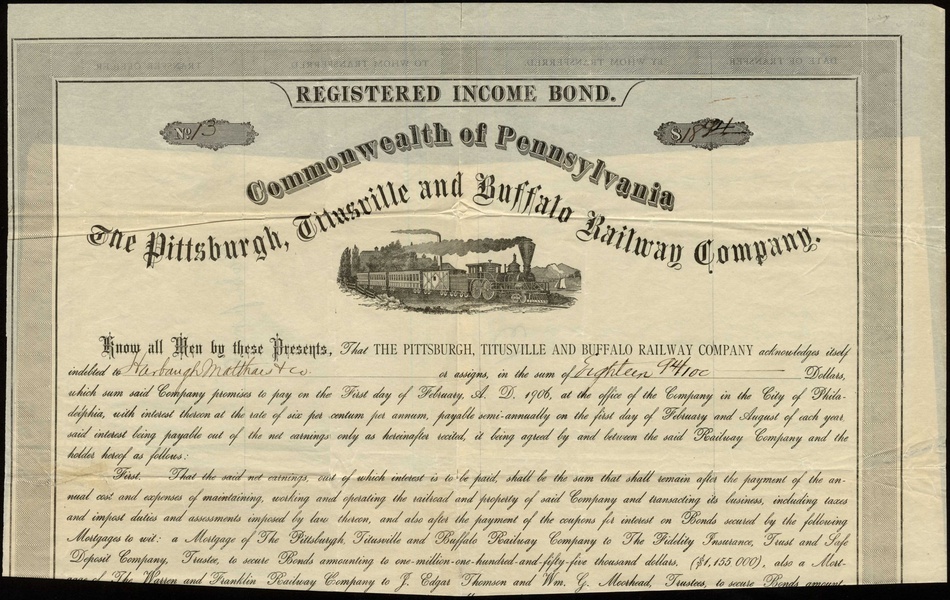 DATE OF TRANSFER BY WHOM TRANSFERRED TO WHOM TRANSFERRED TRANSFER OFFICER
REGISTERED INCOME BOND.
No 13 $18 94
Commonwealth of Pennsylvania
The Pittsburgh, Titusville and Buffalo Railway Company.
Know all Men by these Presents, That THE PITTSBURGH, TITUSVILLE AND BUFFALO RAILWAY COMPANY acknowledges itself
indebted to Harbaugh Matthias & Co. or assigns, in the sum of Eighteen 94/100 Dollars,
which sum said Company promises to pay on the First day of February, A. D. 1906, at the office of the Company in the City of Phila-
delphia, with interest thereon at the rate of six per centum per annum, payable semi-annually on the first day of February and August of each year,
said interest being payable out of the net earnings only as hereinafter recited, it being agreed by and between the said Railway Company and the
holder hereof as follows:
First. That the said net earnings, out of which interest is to be paid, shall be the sum that shall remain after the payment of the an-
nual cost and expenses of maintaining, working and operating the railroad and property of said Company and transacting its business, including taxes
and impost duties and assessments imposed by law thereon, and also after the payment of the coupons for interest on Bonds secured by the following
Mortgages to wit: a Mortgage of The Pittsburgh, Titusville and Buffalo Railway Company to The Fidelity Insurance, Trust and Safe
Deposit Company, Trustee, to secure Bonds amounting to one-million-one-hundred-and-fifty-five thousand dollars, ($1,155 000), also a Mort-
gage of The Warren and Franklin Railway Company to J. Edgar Thomson and Wm. G. Moorhead, Trustees, to secure Bonds amount-